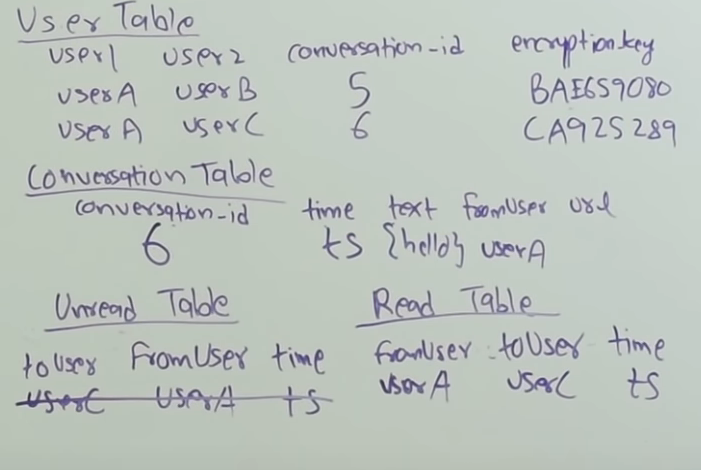 User Table
user1 user2 conversation-id encryption key
userA userB 5 BAE659080
userA userC 6 CA925289
Conversation Table
conversation-id time text fromUser url
6 ts {hello} userA
Unread Table Read Table
toUser FromUser time fromUser toUser time
userC userA ts userA userC ts